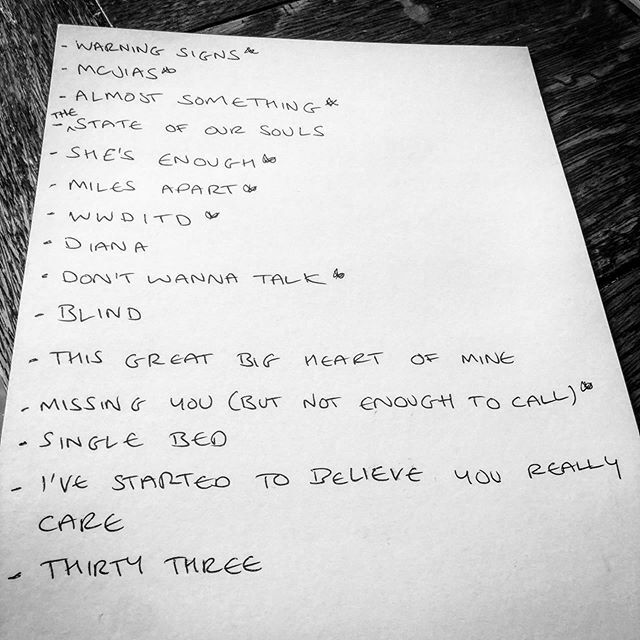 - WARNING SIGNS*
- MCJIAS*
- ALMOST SOMETHING*
THE
- ^STATE OF OUR SOULS
- SHE'S ENOUGH*
- MILES APART*
- WWDITD*
- DIANA
- DON'T WANNA TALK*
- BLIND
- THIS GREAT BIG HEART OF MINE
- MISSING YOU (BUT NOT ENOUGH TO CALL)*
- SINGLE BED
- I'VE STARTED TO BELIEVE YOU REALLY
CARE
- THIRTY THREE